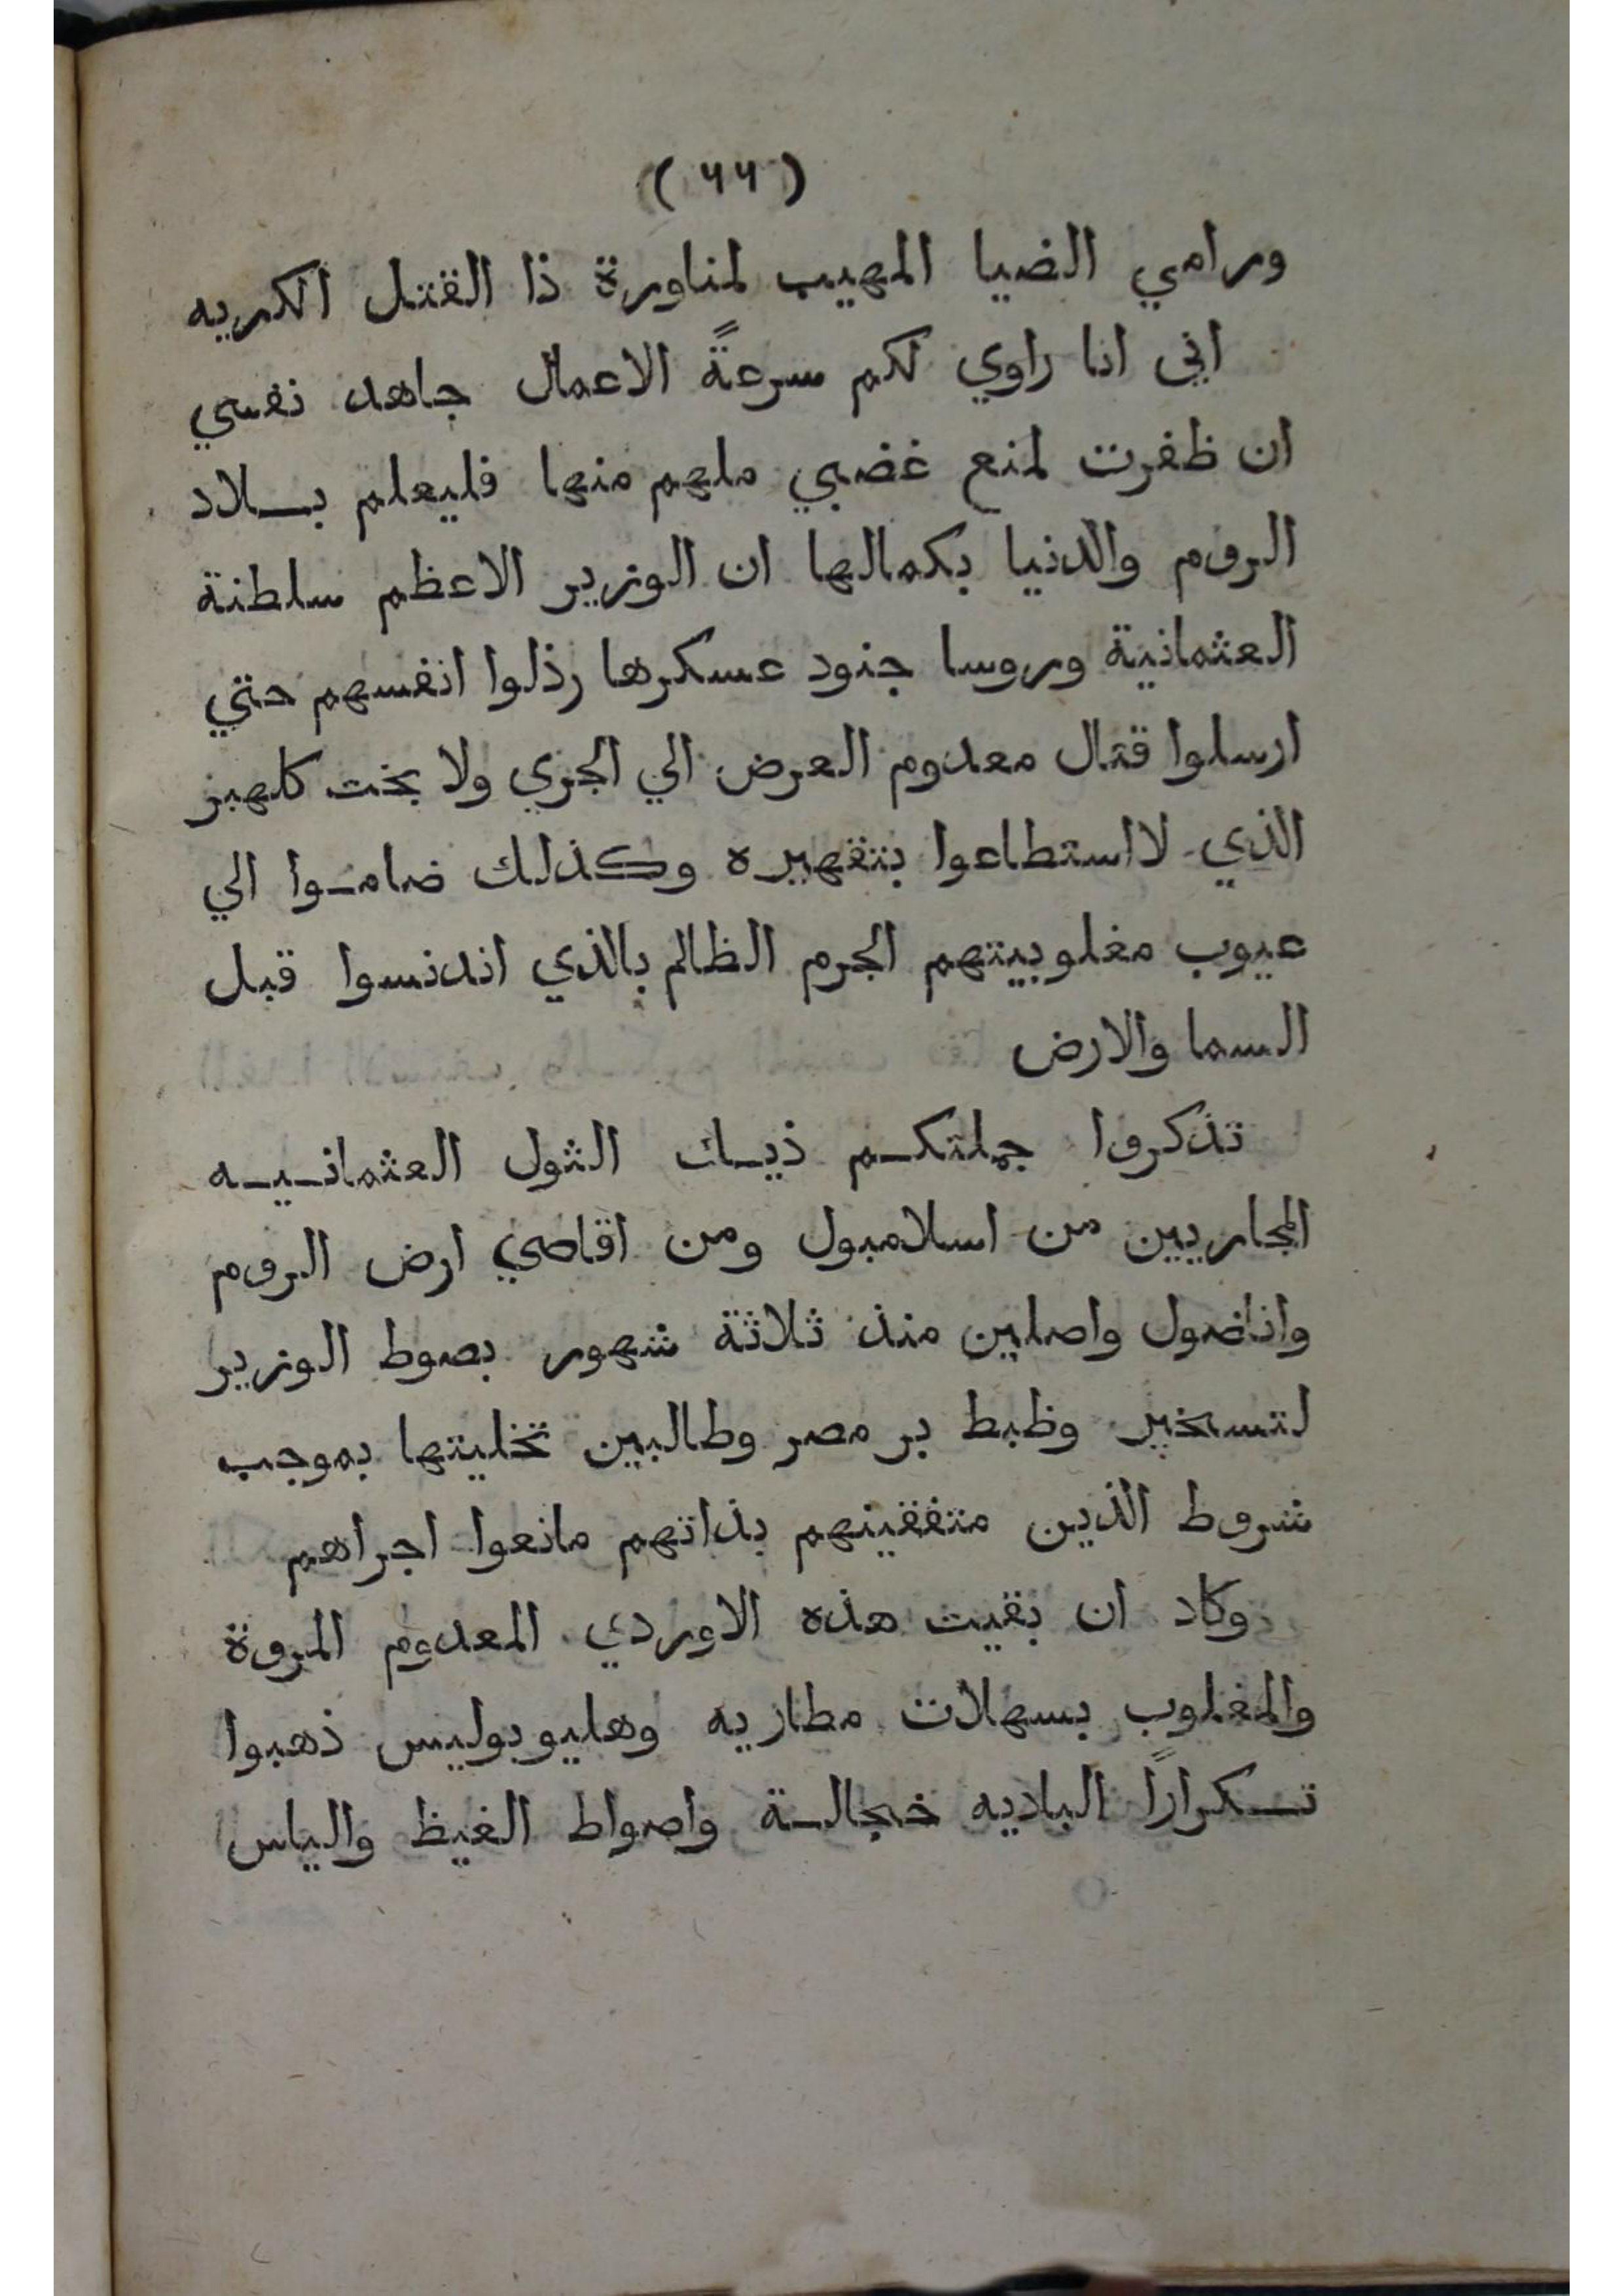 ( ٦٦ )
ورامي الضيا المهيب لمناورة ذا القتل الكريه
اني انا راوي لكم سرعةً الاعمال جاهد نفسي
ان ظفرت لمنع غضبي ملهم منها فليعلم بلاد
الروم والدنيا بكمالها ان الوزير الاعظم سلطنة
العثمانية وروسا جنود عسكرها رذلوا انفسهم حتي
ارسلوا قتال معدوم العرض الي الجري ولا بخت كلهبر
الذي لا استطاعوا بتقهيره وكذلك ضاموا الي
عيوب مغلوبيتهم الجرم الظالم بالذي اندنسوا قبل
السما والارض
تذكروا جملتكم ذيك الثول العثمانيه
المجاريين من اسلامبول ومن اقاصي ارض الروم
واناضول واصلين منذ ثلاثة شهور بصوط الوزير
لتسخير وظبط بر مصر وطالبين تخليتها بموجب
شروط الذين متفقينهم بذاتهم مانعوا اجراهم
وكاد ان بقيت هذه الاوردي المعدوم المروة
والمغلوب بسهلات مطاريه وهليوبوليس ذهبوا
تكراراً الباديه خجالة واصواط الغيظ والياس